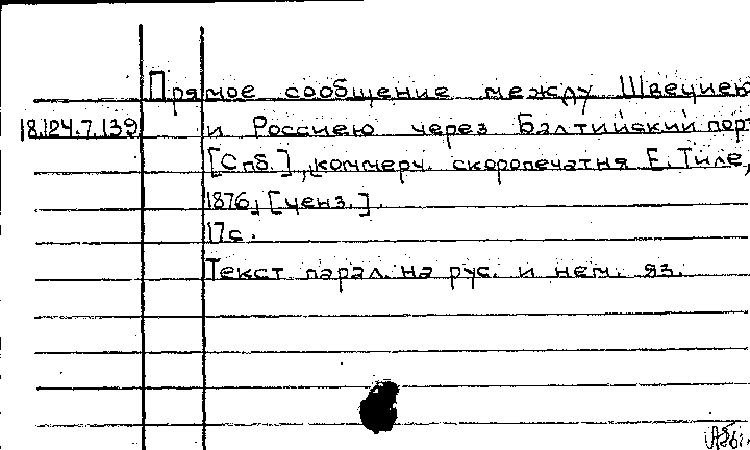 Прямое сообщение между Швециею
18.124.7.139 и Россиею через Балтийский порт
[Спб.], коммерч. скоропечатня Е. Тиле,
1876, [ценз.].
17с.
Текст парал. на рус. и нем. яз.